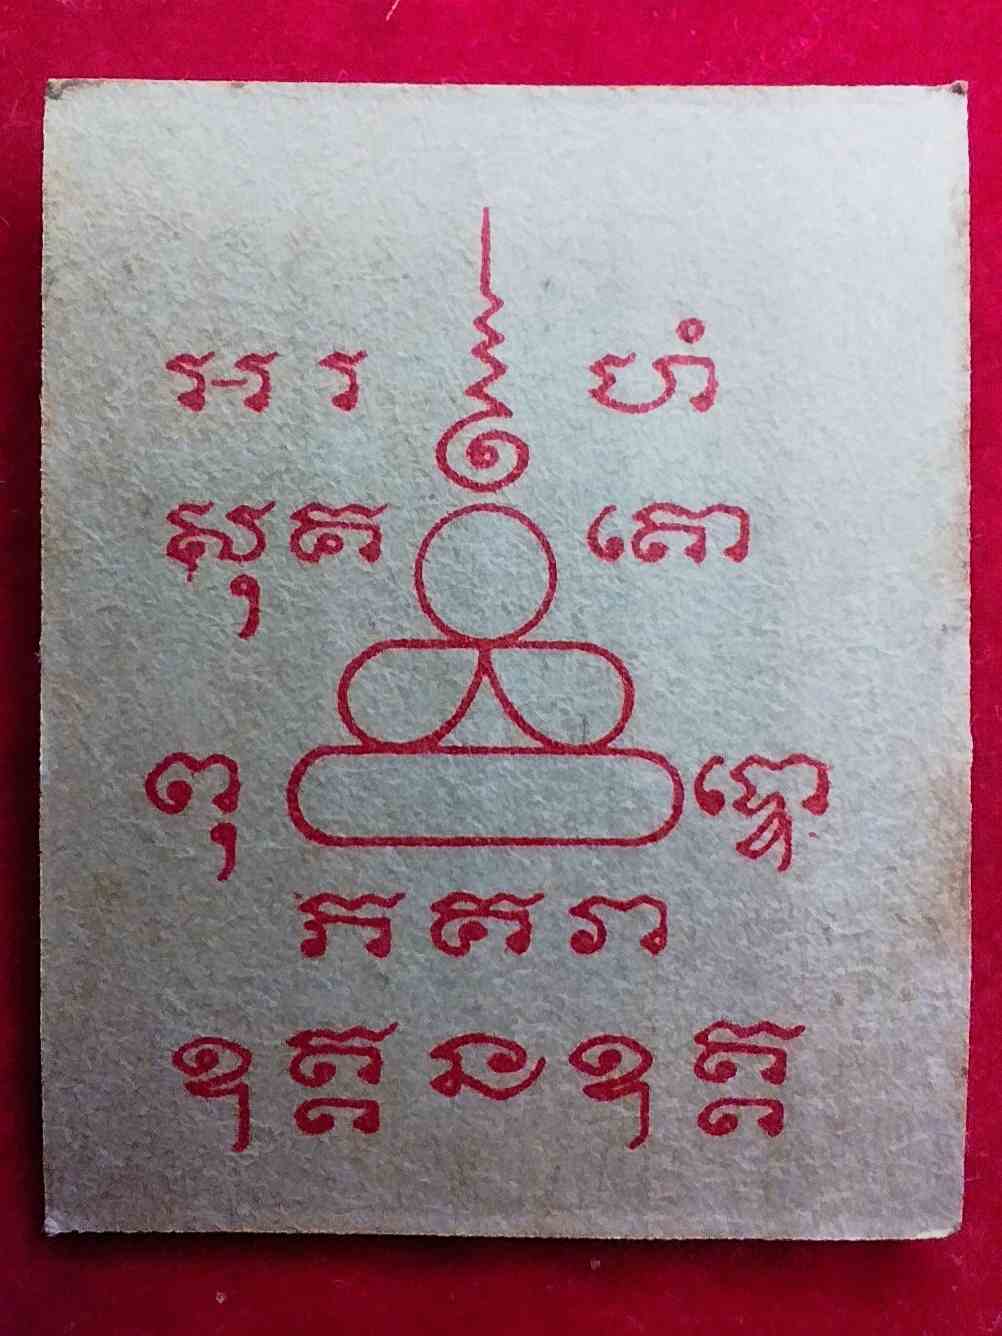 អ រ ហំ
សុ គ តោ
ពុ ទ្ធោ
ភ គ វា
ឧ ត្ត ន ឧ ត្ត